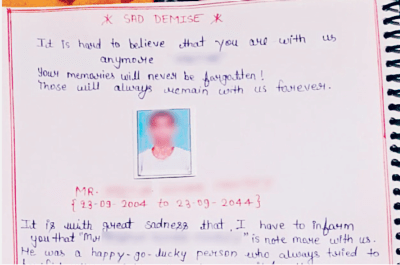 * SAD DEMISE *
It is hard to believe that you are with us
anymore
Your memories will never be forgotten!
Those will always remain with us forever.
MR.
[23-09-2004 to 23-09-2044]
It is with great sadness that, I have to inform
you that "Mr "is note more with us.
He was a happy-go-lucky person who always tried to